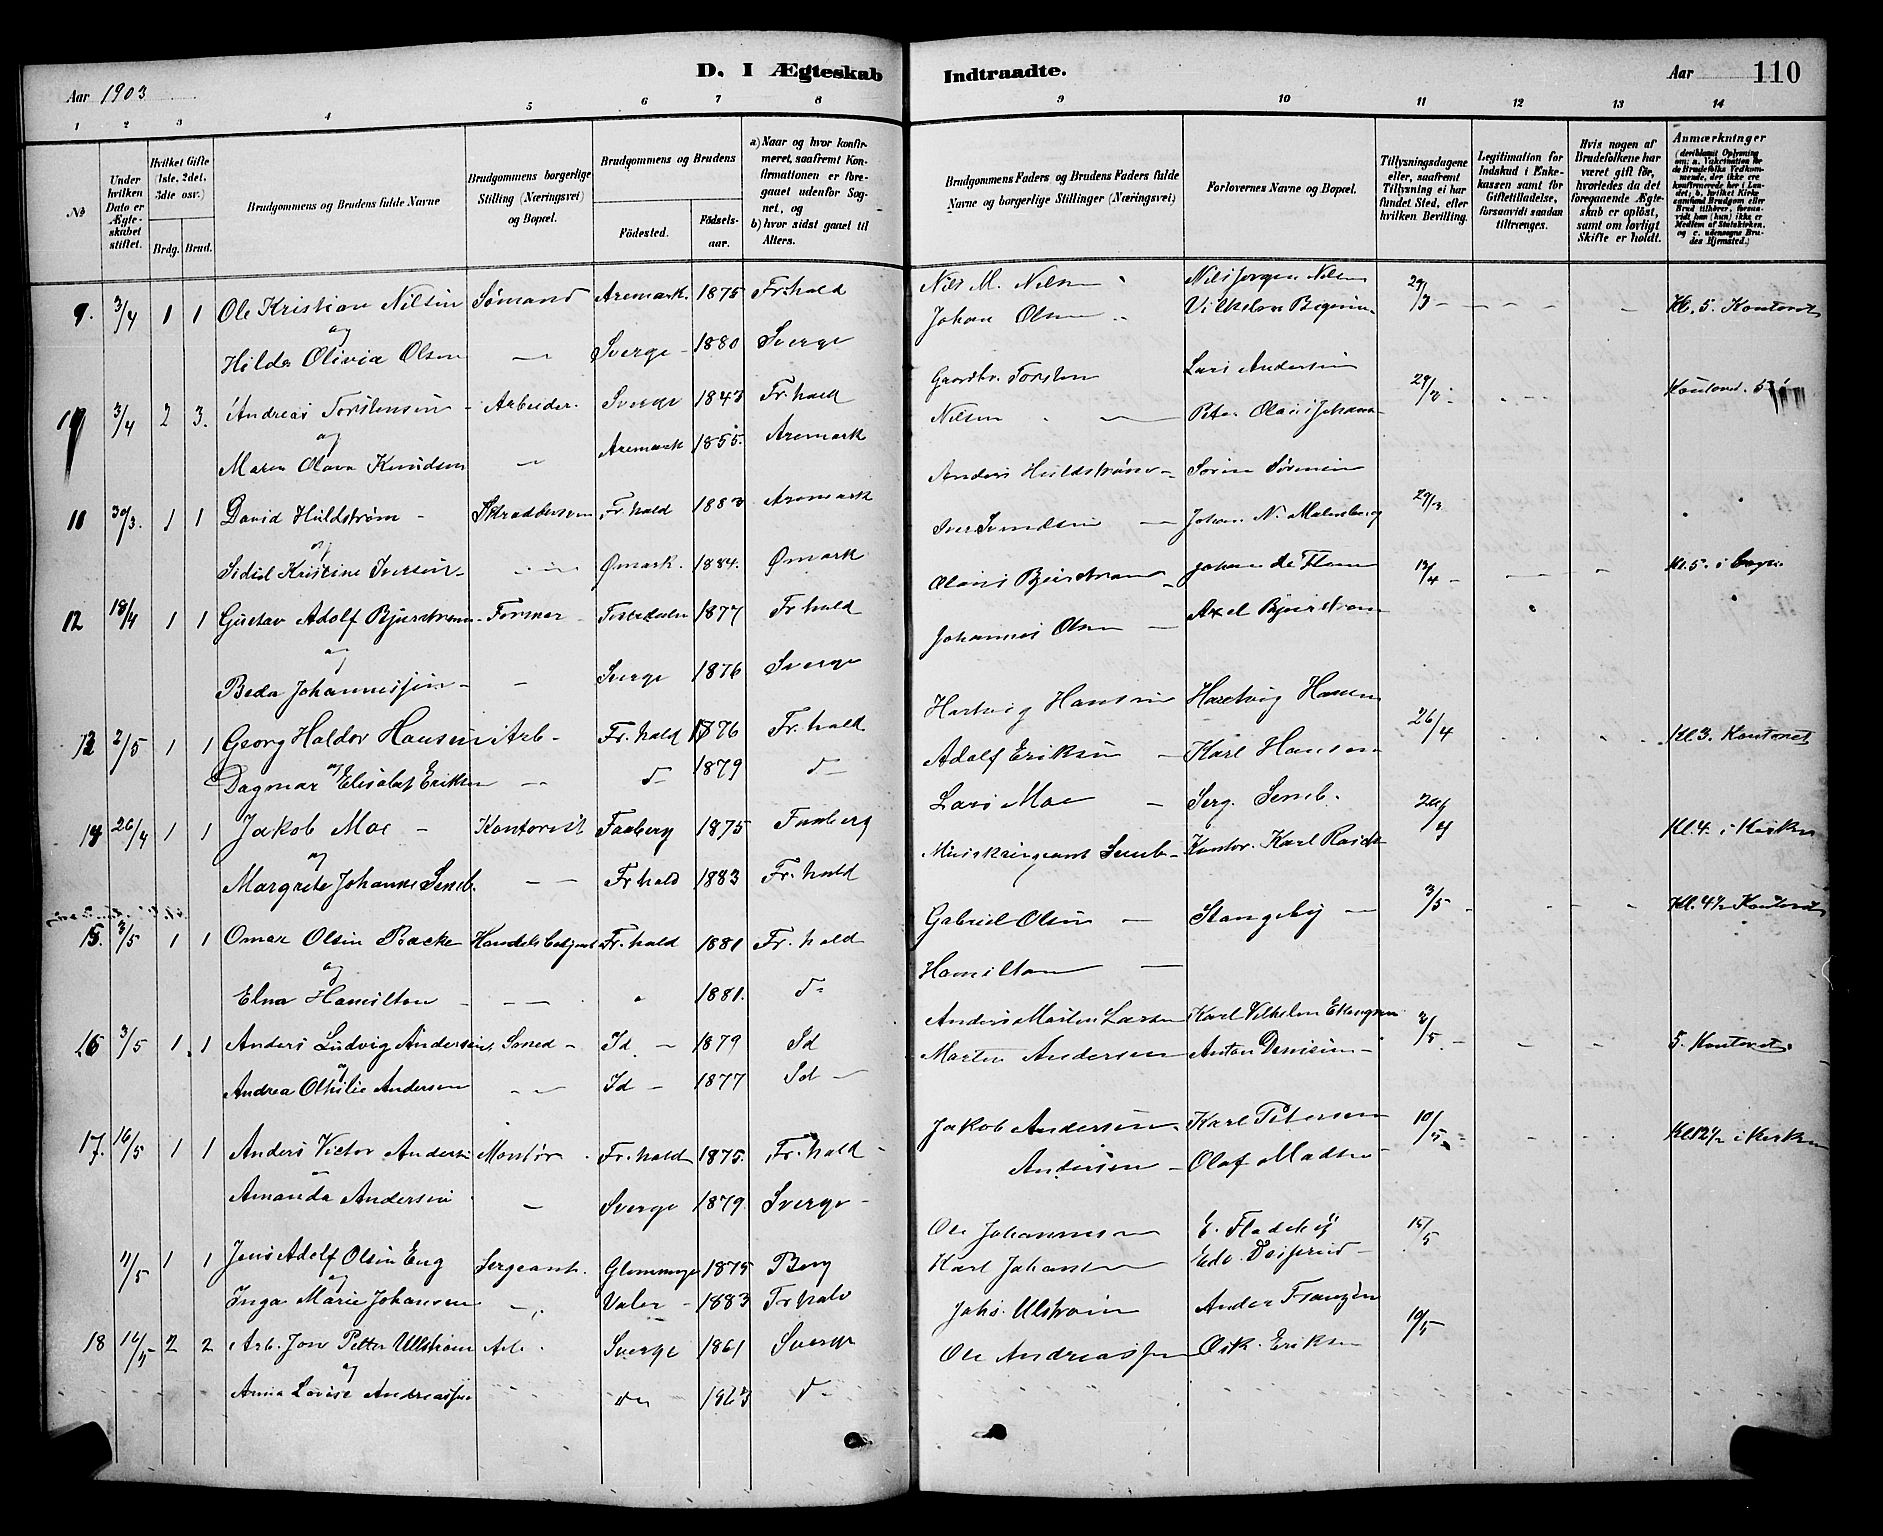 D. I Ægteskab Indtraadte.
Aar 1903
Aar 110
1 2 3 4 5 6 7 8 9 10 11 12 13 14
№
Under hvilken Dato er Ægteskabet stiftet.
Hvilket Gifte (1ste, 2det, 3die osv.)
Brdg. Brud.
Brudgommens og Brudens fulde Navne
Brudgommens borgerlige Stilling (Næringsvei) og Bopæl.
Brudgommens og Brudens
Födested. Födselsaar.
a) Naar og hvor konfirmeret, saafremt Konfirmationen er foregaaet udenfor Sognet, og
b) hvor sidst gaaet til Alters.
Brudgommens Faders og Brudens Faders fulde Navne og borgerlige Stillinger (Næringsvei)
Forlovernes Navne og Bopæl.
Tillysningsdagene eller, saafremt Tillysning ei har fundet Sted, efter hvilken Bevilling.
Legitimation for Indskud i Enkekassen samt for Giftetilladelse, forsaavidt saadan tiltrænges.
Hvis nogen af Brudefolkene har været gift før, hvorledes da det foregaaende Ægteskab er oplöst, samt om lovligt Skifte er holdt.
Anmærkninger
9. 3/4 1 1 Ole Kristian Nilsen Sømand Aremark 1875 Fr.hald Nils M. Nilsen Nils Jørgen Nilsen 29/3 Kl. 5. Kontoret
og
Hilda Olivia Olsen Sverge 1880 Sverge Johan Olsen Vilhelm
3/4 2 3. Andreas Torstensen Arbeider Sverge 1843 Fr.hald Gaardbr. Torsten Lars Andersen 29/3 Kontoret. 5
og
Maren Olava Knudsen Aremark 1855. Aremark Nilsen Peter Olaus Johans
11 30/3. 1 1 David Huldstrøm Skrædersvend Fr.hald 1883 Aremark Anders Huldstrøm Søren Sørensen 29/3
og
Sidsel Kristine Iversen Ømark. 1884. Ømark Iver Svendsen Johan N. Malmberg
12 18/4 1 1 Gustav Adolf Bjurstrøm Former Tistedalen 1877 Fr.hald Olaus Bjurstrøm Johan de Flon 13/4 Kl. 5. i
og
Beda Johannessen Sverge 1876 Sverge Johannes Olsen Axel Bjurstrøm
13 2/5 1 1 Georg Haldor Hansen Arb Fr.hald 1876 Fr.hald Hartvig Hansen Hartvig Hansen 26/4 Kl 3. Kontoret
og
Dagmar Elisabet Eriksen do 1879 do Adolf Eriksen Karl Hansen
14 26/4 1 1 Jakob Moe Kontorist Faaberg 1875 Faaberg Lars Moe Serg. Semb. Kl. 4. i Kirken
og
Margrete Johanne Semb. Fr.hald 1883 Fr.hald Musiksergeant Semb Kontor. Karl
15. 3/5 1 1 Omar Olsen Backe Handelsbetjent Fr.hald 1881 Fr.hald Gabriel Olsen Stangeby 3/5 Kl. 4½ Kontoret
og
Elna Hamilton 1881. do Hamilton
16 3/5 1 1 Anders Ludvig Andersen Smed Id 1879 Id Anders Martin Larsen Karl Vilhelm 3/5 5. Kontoret
og
Andrea Othilie Andersen Id 1877 Id Martin Andersen Anton Denisen
17. 16/5 1 1 Anders Victor Andersen Montør Fr.hald 1875. Fr.hald Jakob Andersen Karl Petersen 10/5 Kl 12½ i Kirken
Amanda Andersen Sverge 1879. Sverge Andersen Olaf Madsen
11/5 1 1 Jens Adolf Olsen Eng Sergeant. Glemminge 1875 Berg Ole Johannesen E. Fladeby 15/5
og
Inga Marie Johansen Valer 1883 Fr.hald Karl Johansen Edv.
18 16/5 2 2 Arb. Jon Petter Ullstrøm Arb. Sverge 1861 Sverge Johs. Ulstrøm Anders Franzén 10/5
og
Anna Lovise Andreassen do 1863 do Ole Andreassen Osk. Eriksen